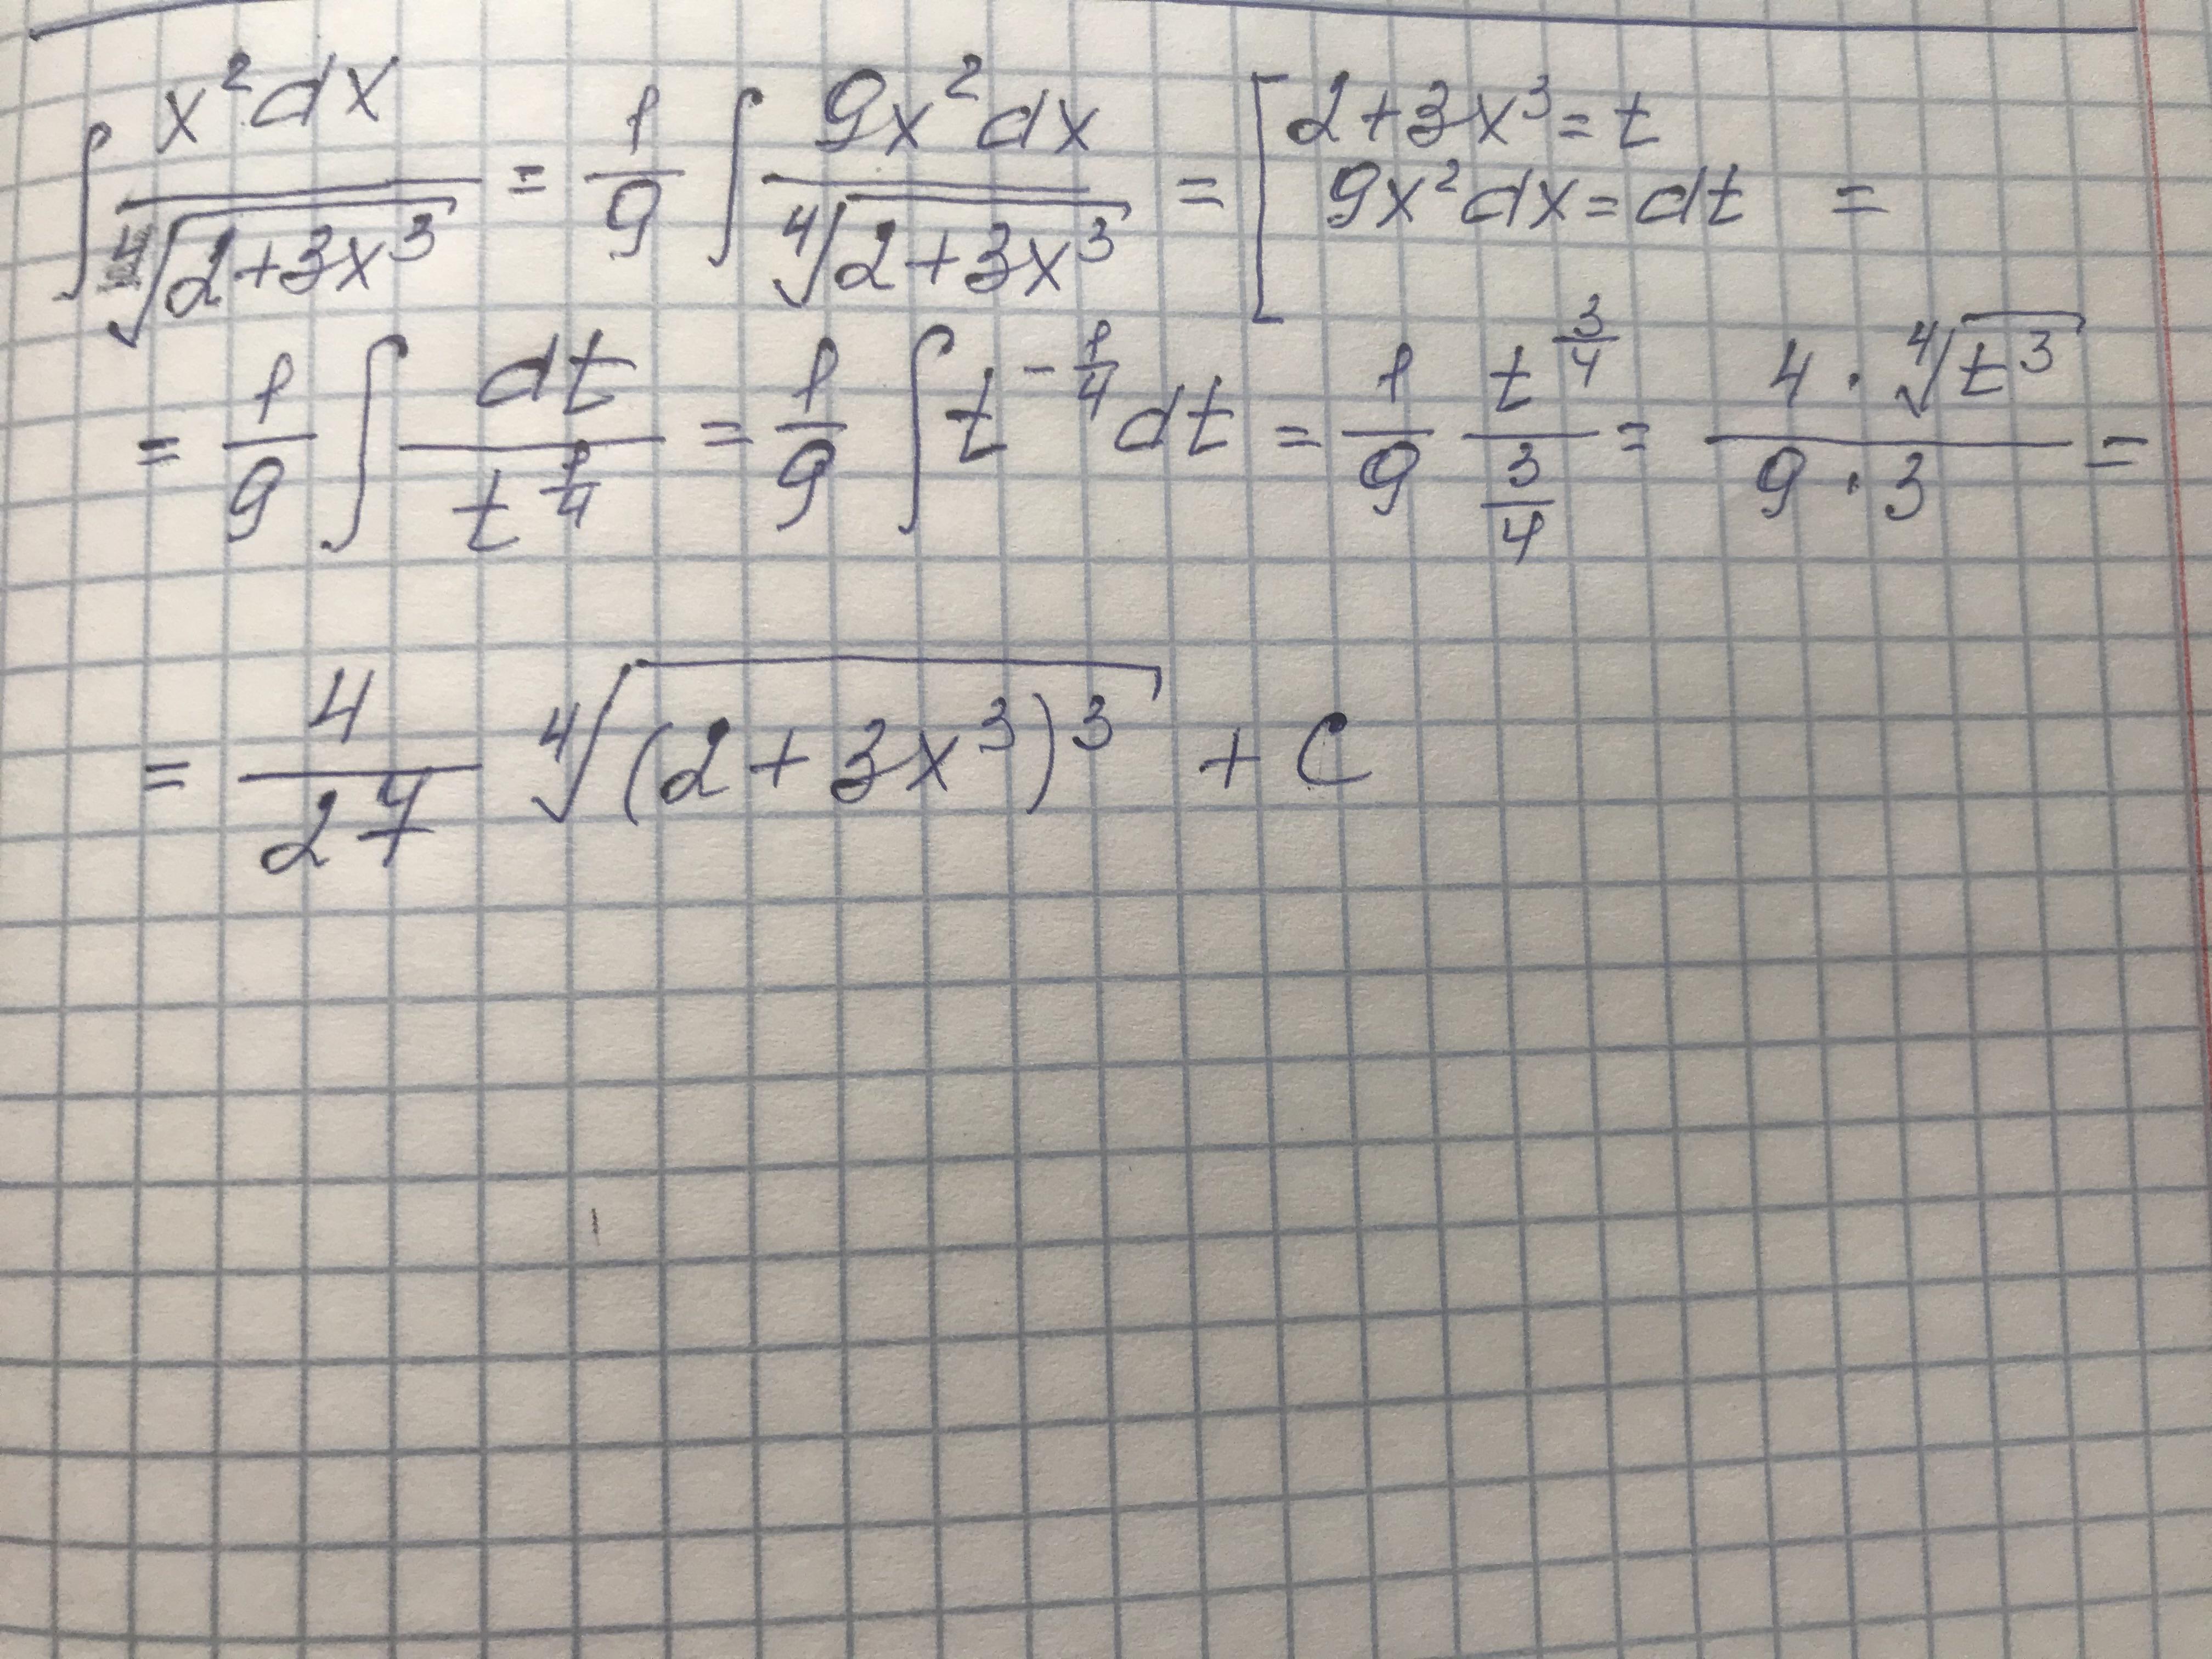 ∫ x² dx / ⁴√(2+3x³) = 1/9 ∫ 9x² dx / ⁴√(2+3x³) = [ 2+3x³ = t
9x² dx = dt =
= 1/9 ∫ dt / t^(1/4) = 1/9 ∫ t^(-1/4) dt = 1/9 t^(3/4) / (3/4) = 4 · ⁴√(t³) / (9 · 3) =
= 4/27 ⁴√((2 + 3x³)³) + C